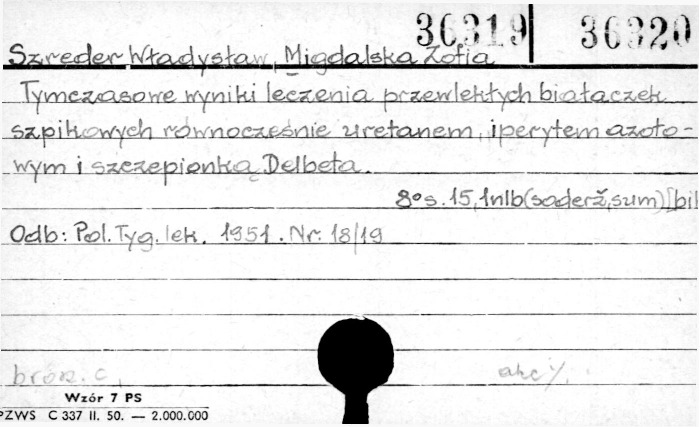 36319 36320
Szreder Władysław, Migdalska Zofia
Tymczasowe wyniki leczenia przewlekłych białaczek
szpikowych równocześnie uretanem, iperytem azoto-
wym i szczepionką Delbeta.
8° s. 15, 1nlb (soderž, sum) [bil
Odb: Pol. Tyg. lek. 1951. Nr. 18/19
bro
Wzór 7 PS
PZWS C 337 II. 50. — 2.000.000